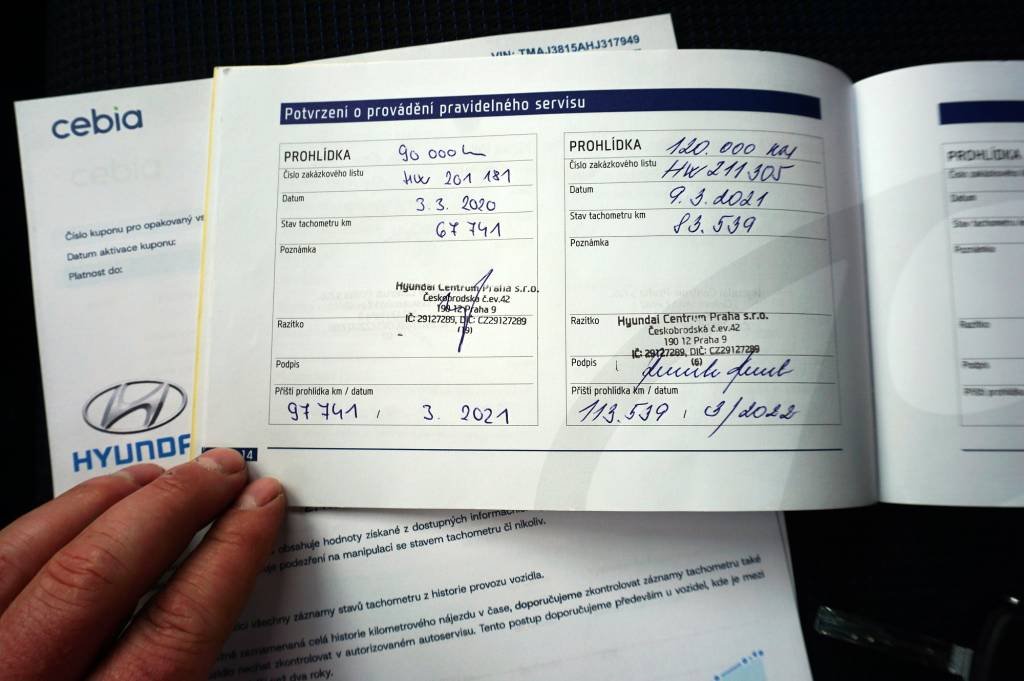 VIN: TMAJ3815AHJ317949
cebia
Číslo kuponu pro opakovaný
Datum aktivace kuponu:
Platnost do:
HYUNDA
Potvrzení o provádění pravidelného servisu
PROHLÍDKA 90 000 km
Číslo zakázkového listu HW 201 181
Datum 3. 3. 2020
Stav tachometru km 67 741
Poznámka
Hyundai Centrum Praha s.r.o.
Českobrodská č.ev.42
190 12 Praha 9
IČ: 29127289, DIČ: CZ29127289
Razítko
Podpis
Příští prohlídka km / datum
97 741 / 3. 2021
PROHLÍDKA 120.000 km
Číslo zakázkového listu HW 211305
Datum 9. 3. 2021
Stav tachometru km 83.539
Poznámka
Razítko Hyundai Centrum Praha s.r.o.
Českobrodská č.ev.42
190 12 Praha 9
IČ: 29127289, DIČ: CZ29127289
(6)
Podpis
Příští prohlídka km / datum
113.539 / 3/2022
14
PROHLÍDKA
Číslo zakázkového
Datum
Stav tachometru km
Poznámka
Razítko
Podpis
Příští prohlídka
obsahuje hodnoty získané z dostupných
podezření na manipulaci se stavem tachometru či nikoliv.
všechny záznamy stavů tachometru z historie provozu vozidla.
zaznamenaná celá historie kilometrového nájezdu v čase, doporučujeme zkontrolovat záznamy tachometru také
nechat zkontrolovat v autorizovaném autoservisu. Tento postup doporučujeme především u vozidel, kde je mezi
dva roky.